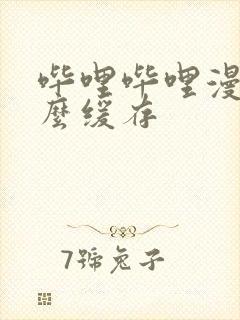 哔哩哔哩漫
麼缓存
7號兔子